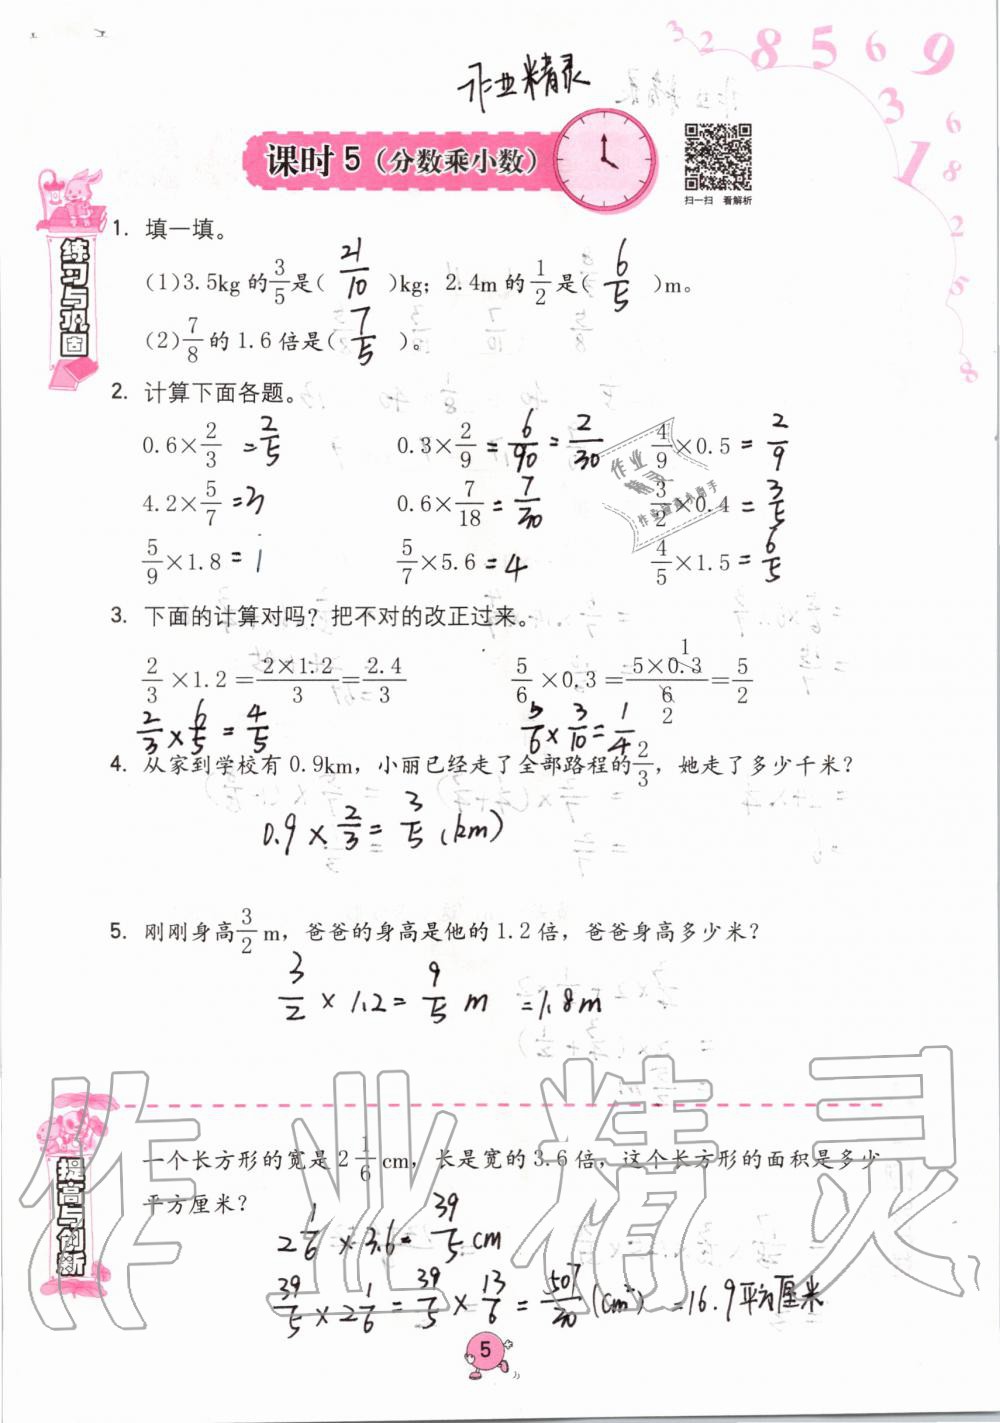 3 2 8 5 6 9
3
1
6
8
2
5
8
作业精灵
课时5（分数乘小数）
扫一扫 看解析
练习与巩固
1. 填一填。
(1)3.5kg的3/5是( 21/10 )kg；2.4m的1/2是( 6/5 )m。
(2)7/8的1.6倍是( 7/5 )。
2. 计算下面各题。
0.6×2/3 =2/5 0.3×2/9 =6/90=2/30 4/9×0.5 =2/9
4.2×5/7 =3 0.6×7/18 =7/30 3/2×0.4 =3/5
5/9×1.8 =1 5/7×5.6 =4 4/5×1.5 =6/5
作业
精灵
3. 下面的计算对吗？把不对的改正过来。
2/3×1.2=2×1.2/3=2.4/3 5/6×0.3=5×0.3/6=5/2
1
2
2/3×6/5=4/5 5/6×3/10=1/4
4. 从家到学校有0.9km，小丽已经走了全部路程的2/3，她走了多少千米？
0.9×2/3=3/5(km)
5. 刚刚身高3/2m，爸爸的身高是他的1.2倍，爸爸身高多少米？
3/2×1.2=9/5 m =1.8m
作业精灵
提高与创新
一个长方形的宽是2 1/6 cm，长是宽的3.6倍，这个长方形的面积是多少
平方厘米？
2 1/6×3.6=39/5 cm
39/5×2 1/6=39/5×13/6=507/30(cm²) =16.9平方厘米
5